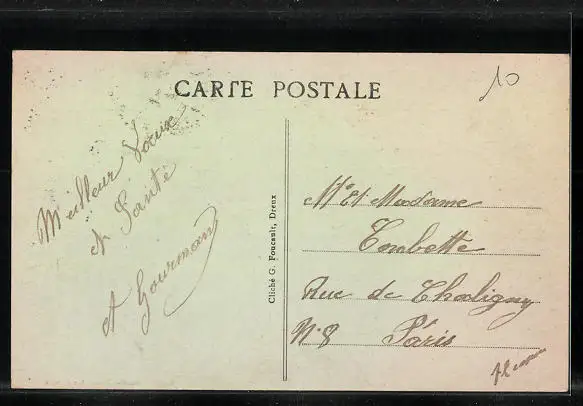 CARTE POSTALE
10
Meilleur Voeux
et Santé
A Gourmand
Cliché G. Foucault, Dreux
Mr Et Madame
Combette
Rue de Chaligny
N.8 Pâris